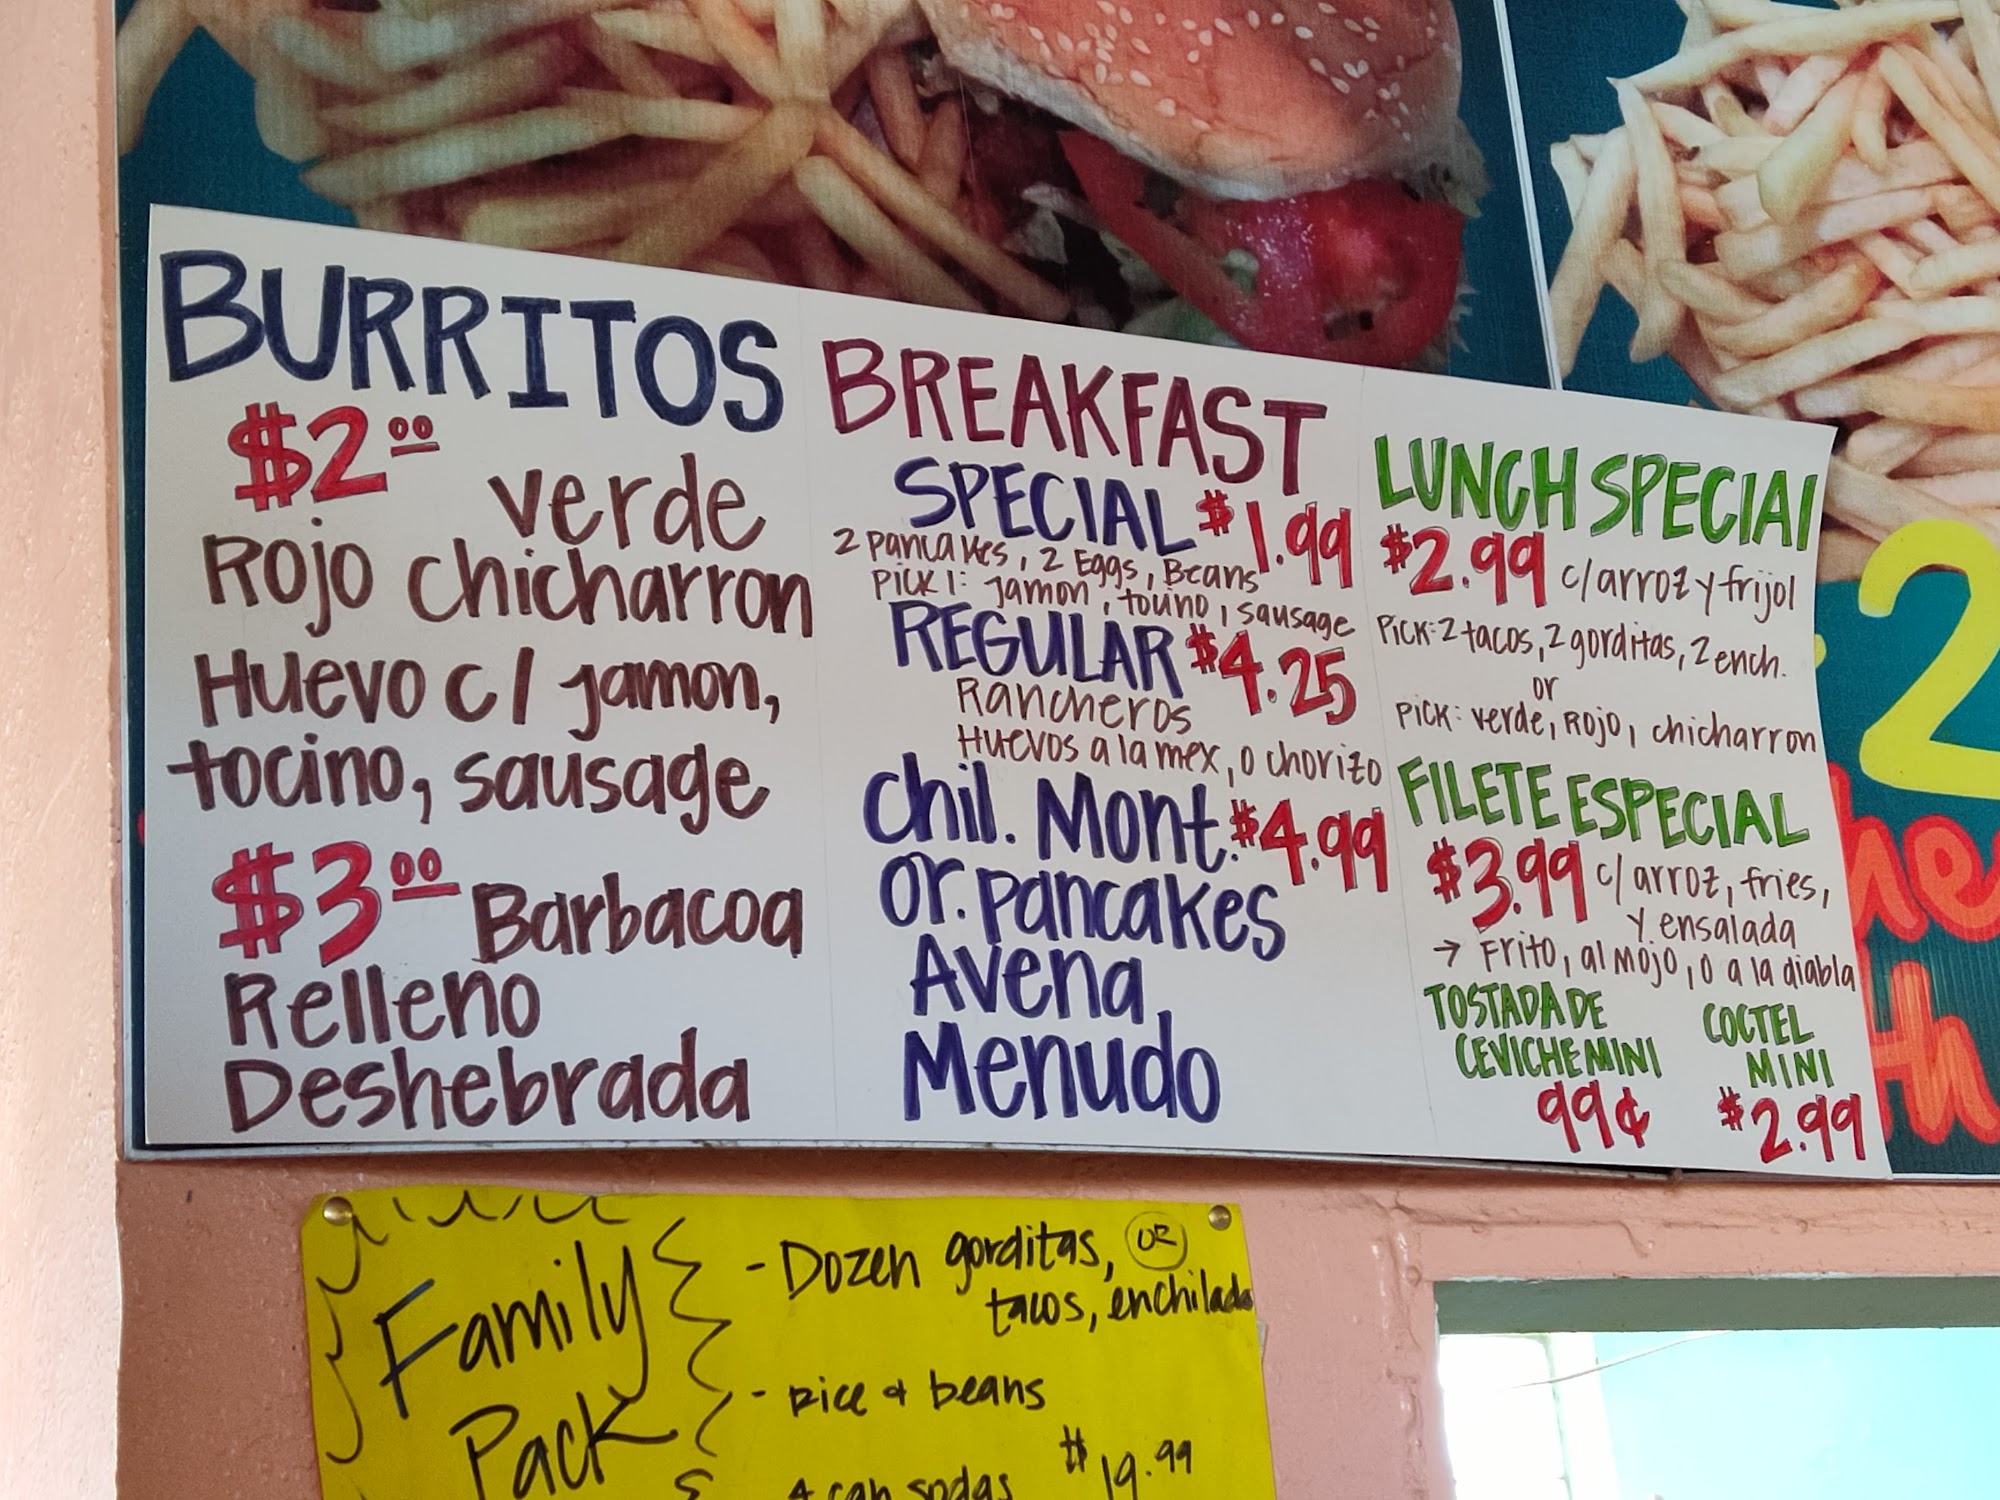 BURRITOS
$2.00 verde
Rojo chicharron
Huevo c/ jamon,
tocino, sausage
$3.00 Barbacoa
Relleno
Deshebrada
BREAKFAST
SPECIAL $1.99
2 pancakes, 2 Eggs, Beans
PICK 1: jamon, tocino, sausage
REGULAR $4.25
Rancheros
Huevos a la mex, o chorizo
Chil. Mont. $4.99
or. pancakes
Avena
Menudo
LUNCH SPECIAL
$2.99 c/ arroz y frijol
PICK: 2 tacos, 2 gorditas, 2 ench.
or
PICK: verde, Rojo, chicharron
FILETE ESPECIAL
$3.99 c/ arroz, fries,
y ensalada
→ Frito, al mojo, o a la diabla
TOSTADA DE
CEVICHE MINI
99¢
COCTEL
MINI
$2.99
2
he
th
Family
Pack
- Dozen gorditas, OR
tacos, enchilada
- rice & beans
4 can sodas $19.99